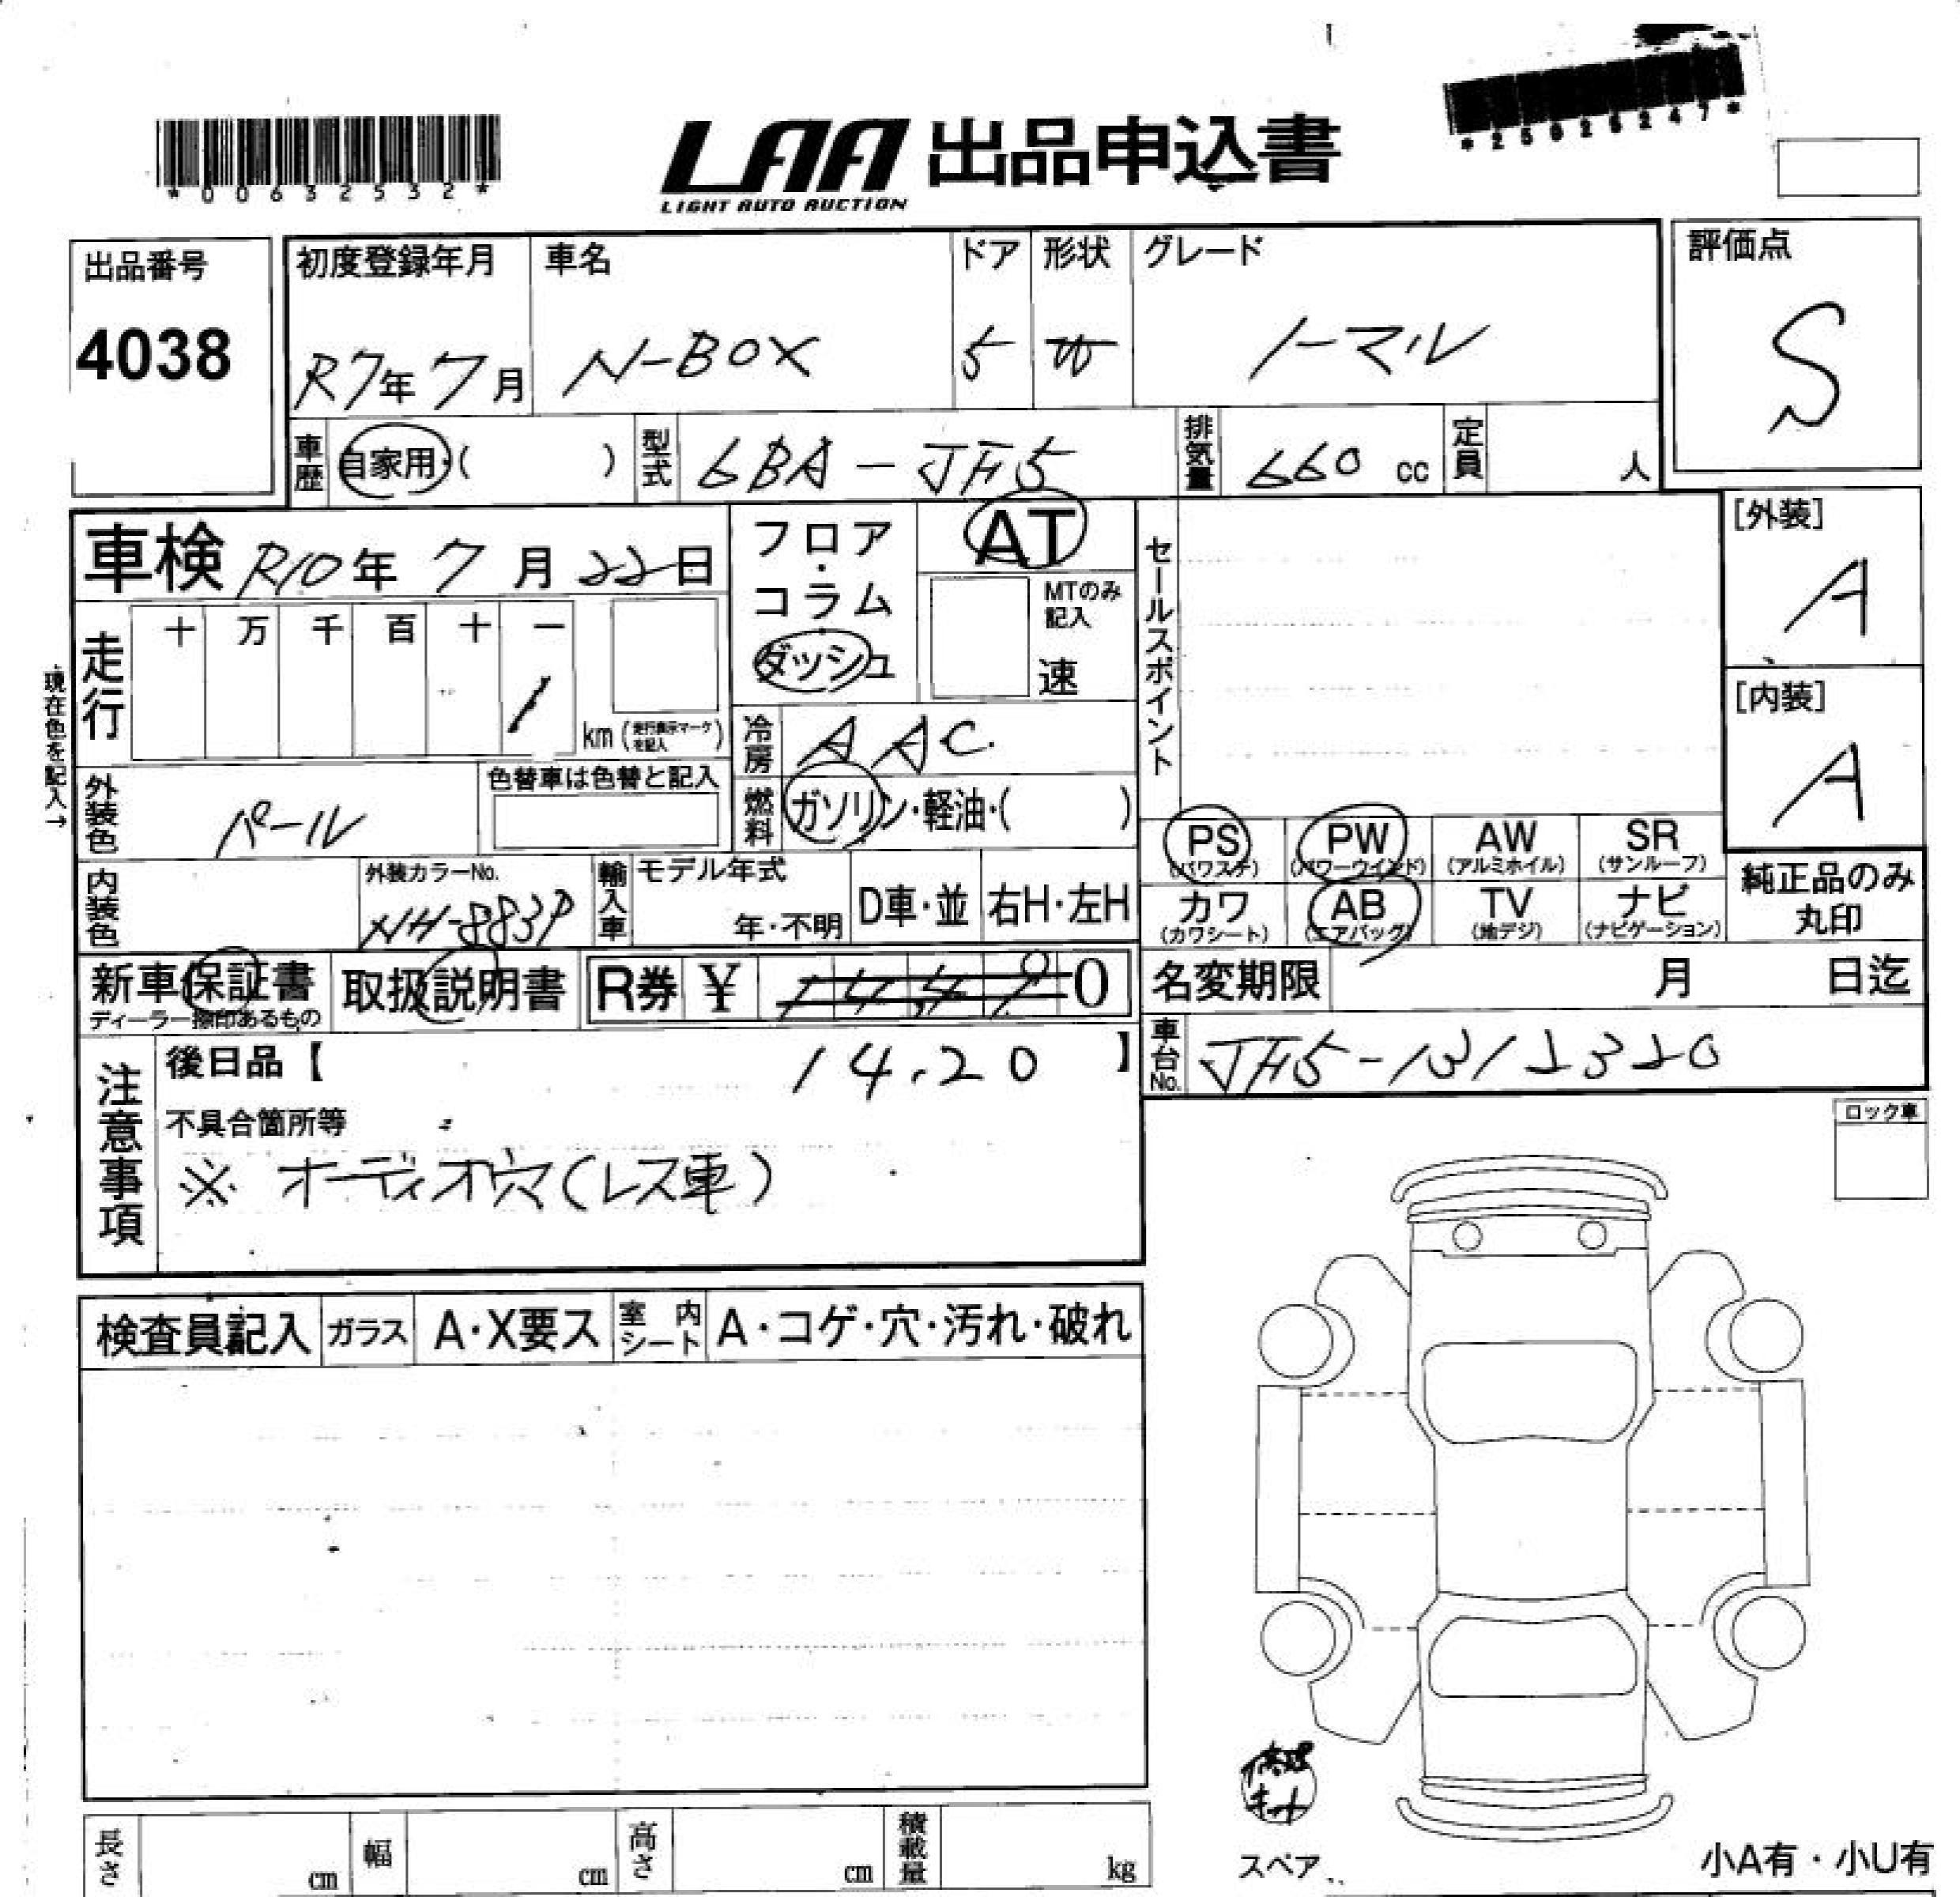 *00632532*
LAA 出品申込書
LIGHT AUTO AUCTION
*25025247*
出品番号
4038
初度登録年月
R7年7月
車名
N-BOX
ドア
5
形状
W
グレード
ノーマル
評価点
S
車歴 自家用・( )
型式 6BA-JF5
排気量 660 cc
定員 人
車検 R10年 7月 22日
フロア・コラム・ダッシュ
AT
MTのみ記入
速
セールスポイント
[外装]
A
[内装]
A
現在色を記入→
走行
十 万 千 百 十 一
1
km (走行表示マークを記入)
冷房 AAC
外装色 パール
色替車は色替と記入
燃料 ガソリン・軽油・( )
PS (パワステ)
PW (パワーウインド)
AW (アルミホイル)
SR (サンルーフ)
カワ (カワシート)
AB (エアバッグ)
TV (地デジ)
ナビ (ナビゲーション)
純正品のみ丸印
内装色
外装カラーNo.
NH-883P
輸入車
モデル年式
年・不明
D車・並
右H・左H
新車保証書
ディーラー捺印あるもの
取扱説明書
R券 ¥ 0
名変期限 月 日迄
車台No. JF5-1312320
注意事項
後日品【 14.20 】
不具合箇所等
※ オーディオ穴(レス車)
ロック車
検査員記入
ガラス A・X要ス
室内シート A・コゲ・穴・汚れ・破れ
修理キット
スペア
小A有・小U有
長さ cm
幅 cm
高さ cm
積載量 kg